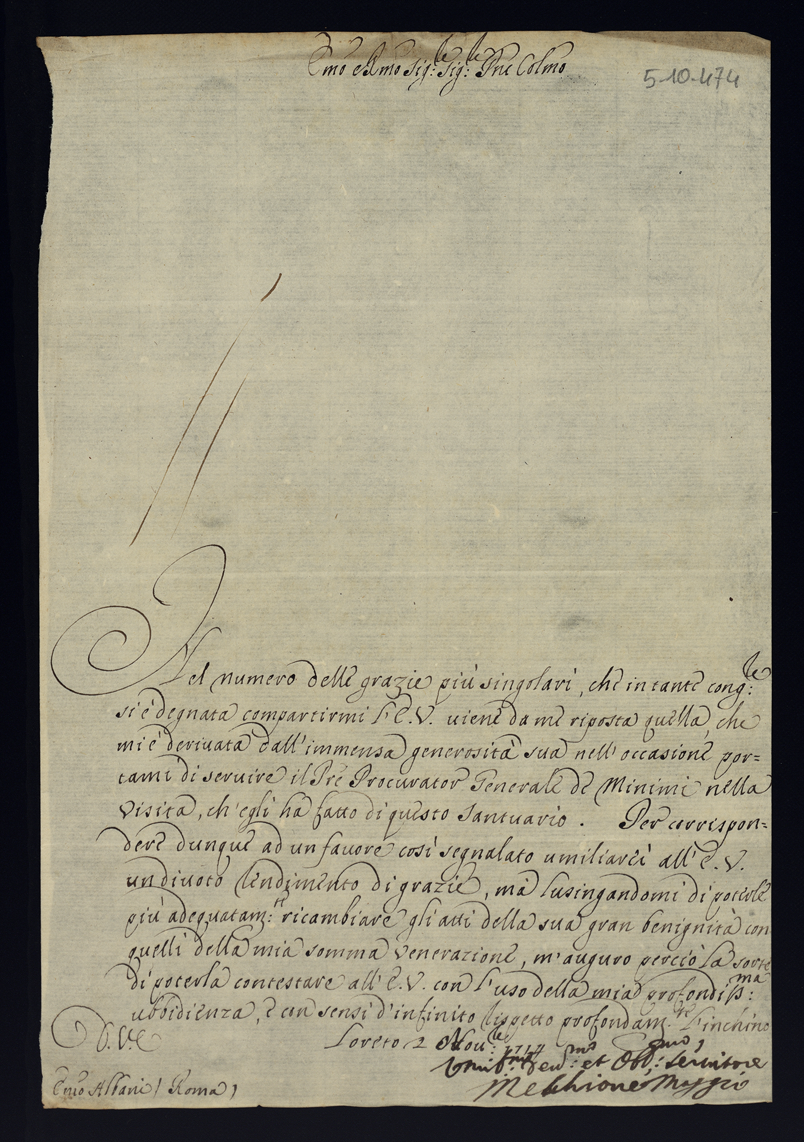 Emo e Rmo Sig:re Sig:re Pne Colmo
5-10-474
Nel numero delle grazie più singolari, che in tante cong:le
si è degnata compartirmi l'E.V. viene da me riposta quella, che
mi è derivata dall'immensa generosità sua nell'occasione por=
tami di servire il Pre Procurator Generale de Minimi nella
visita, ch'egli ha fatto di questo Santuario. Per corrispon=
dere dunque ad un favore così segnalato umiliarei all'E.V.
un divoto rendimento di grazie, mà lusingandomi di poterle
più adeguatam:te ricambiare gli atti della sua gran benignità con
quelli della mia somma venerazione, m'auguro perciò la sorte
di poterla contestare all'E.V. con l'uso della mia profondiss:ma
ubbidienza, e con sensi d'infinito rispetto profondam:te l'inchino
D. V. E.
Loreto 2 Nov:re 1717
Umil:mo Dev:mo et Obb:mo Servitore
Emo Albani / Roma /
Melchiore Maggio